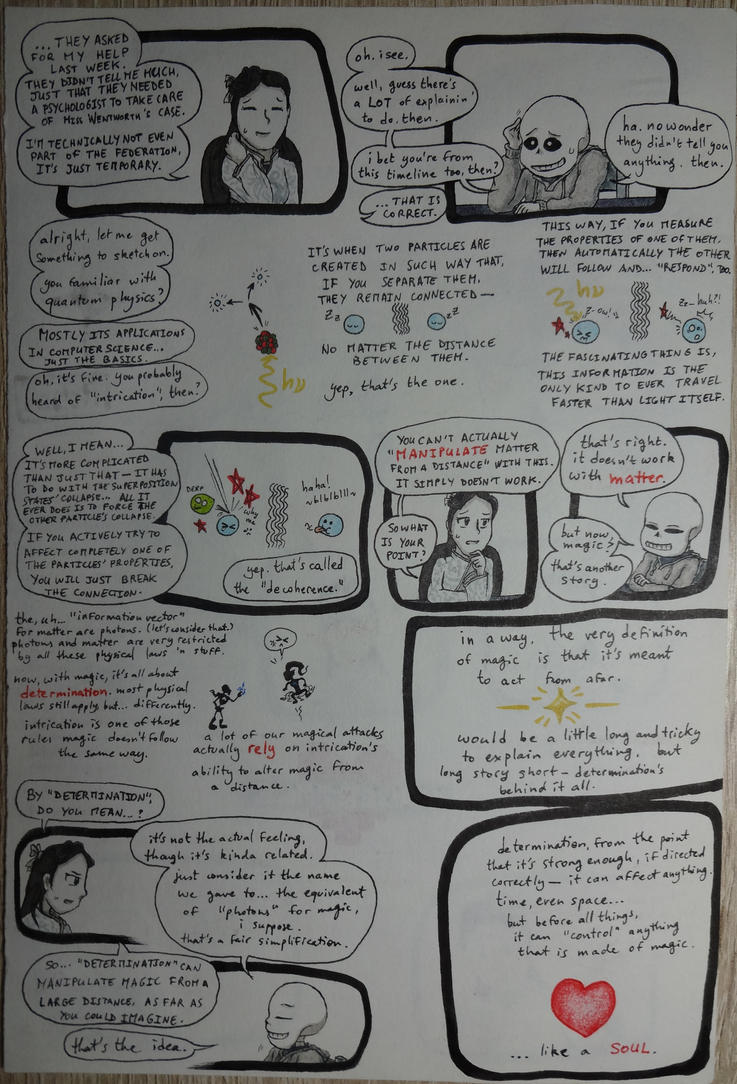 ... THEY ASKED
FOR MY HELP
LAST WEEK.
THEY DIDN'T TELL ME MUCH,
JUST THAT THEY NEEDED
A PSYCHOLOGIST TO TAKE CARE
OF MISS WENTWORTH'S CASE.
I'M TECHNICALLY NOT EVEN
PART OF THE FEDERATION,
IT'S JUST TEMPORARY.
oh. i see.
well, guess there's
a LOT of explainin'
to do. then.
i bet you're from
this timeline too, then?
... THAT IS
CORRECT.
ha. no wonder
they didn't tell you
anything. then.
alright, let me get
something to sketch on.
you familiar with
quantum physics?
MOSTLY ITS APPLICATIONS
IN COMPUTER SCIENCE...
JUST THE BASICS.
oh, it's fine. you probably
heard of "intrication", then?
hν
IT'S WHEN TWO PARTICLES ARE
CREATED IN SUCH WAY THAT,
IF YOU SEPARATE THEM,
THEY REMAIN CONNECTED —
zZ
zZ
NO MATTER THE DISTANCE
BETWEEN THEM.
yep, that's the one.
THIS WAY, IF YOU MEASURE
THE PROPERTIES OF ONE OF THEM,
THEN AUTOMATICALLY THE OTHER
WILL FOLLOW AND... "RESPOND", TOO.
hν
z-ow!
zz-huh?!
THE FASCINATING THING IS,
THIS INFORMATION IS THE
ONLY KIND TO EVER TRAVEL
FASTER THAN LIGHT ITSELF.
WELL, I MEAN...
IT'S MORE COMPLICATED
THAN JUST THAT — IT HAS
TO DO WITH THE SUPERPOSITION
STATES' COLLAPSE... ALL IT
EVER DOES IS TO FORCE THE
OTHER PARTICLE'S COLLAPSE.
IF YOU ACTIVELY TRY TO
AFFECT COMPLETELY ONE OF
THE PARTICLES' PROPERTIES,
YOU WILL JUST BREAK
THE CONNECTION.
DERP
why
me
haha!
~blblblll~
yep. that's called
the "decoherence."
YOU CAN'T ACTUALLY
"MANIPULATE MATTER
FROM A DISTANCE" WITH THIS.
IT SIMPLY DOESN'T WORK.
SO WHAT
IS YOUR
POINT?
that's right.
it doesn't work
with matter.
but now,
magic?
that's another
story.
the, uh... "information vector"
for matter are photons. (let's consider that.)
photons and matter are very restricted
by all these physical laws 'n stuff.
now, with magic, it's all about
determination. most physical
laws still apply but... differently.
intrication is one of those
rules magic doesn't follow
the same way.
a lot of our magical attacks
actually rely on intrication's
ability to alter magic from
a distance.
in a way, the very definition
of magic is that it's meant
to act from afar.
would be a little long and tricky
to explain everything. but
long story short — determination's
behind it all.
BY "DETERMINATION",
DO YOU MEAN...?
it's not the actual feeling,
though it's kinda related.
just consider it the name
we gave to... the equivalent
of "photons" for magic,
i suppose.
that's a fair simplification.
SO... "DETERMINATION" CAN
MANIPULATE MAGIC FROM A
LARGE DISTANCE, AS FAR AS
YOU COULD IMAGINE.
that's the idea.
determination, from the point
that it's strong enough, if directed
correctly — it can affect anything.
time, even space...
but before all things,
it can "control" anything
that is made of magic.
... like a SOUL.